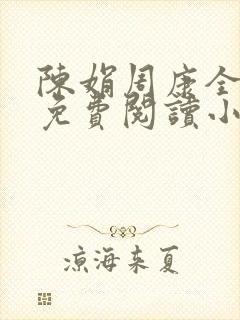 陳娟周康全
免費閱讀小
涼海來夏